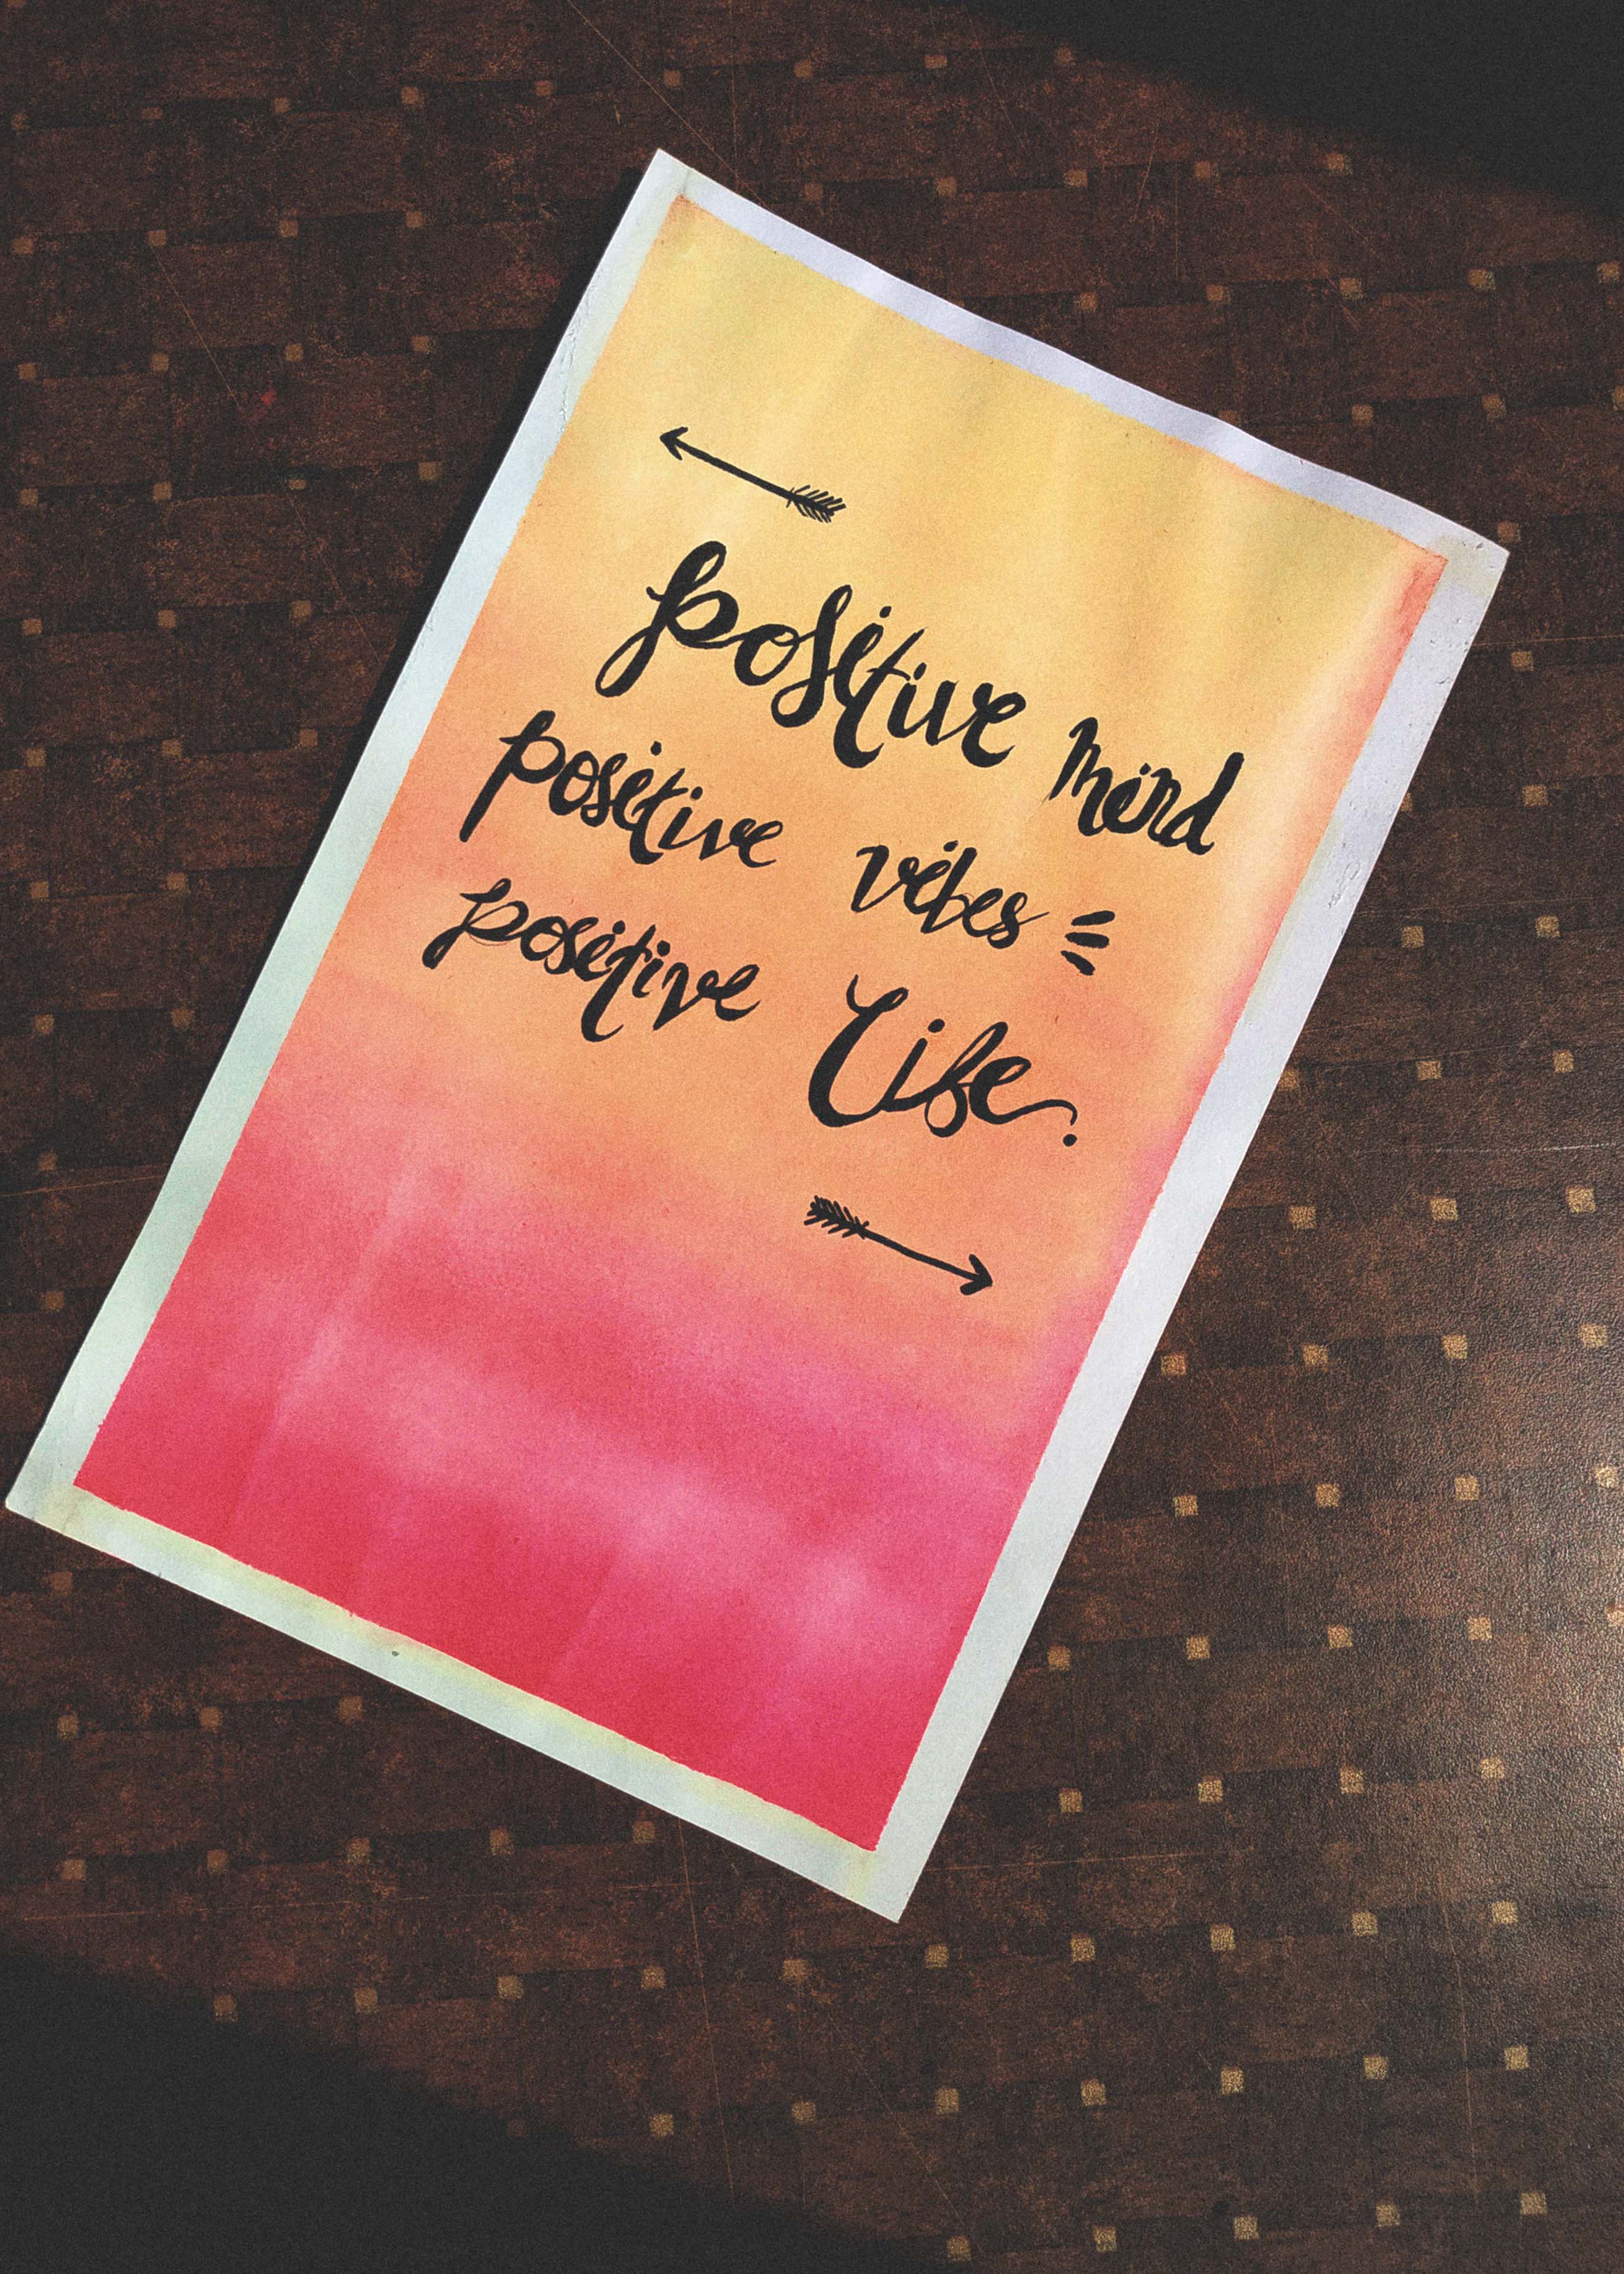 positive mind
positive vibes
positive Life.